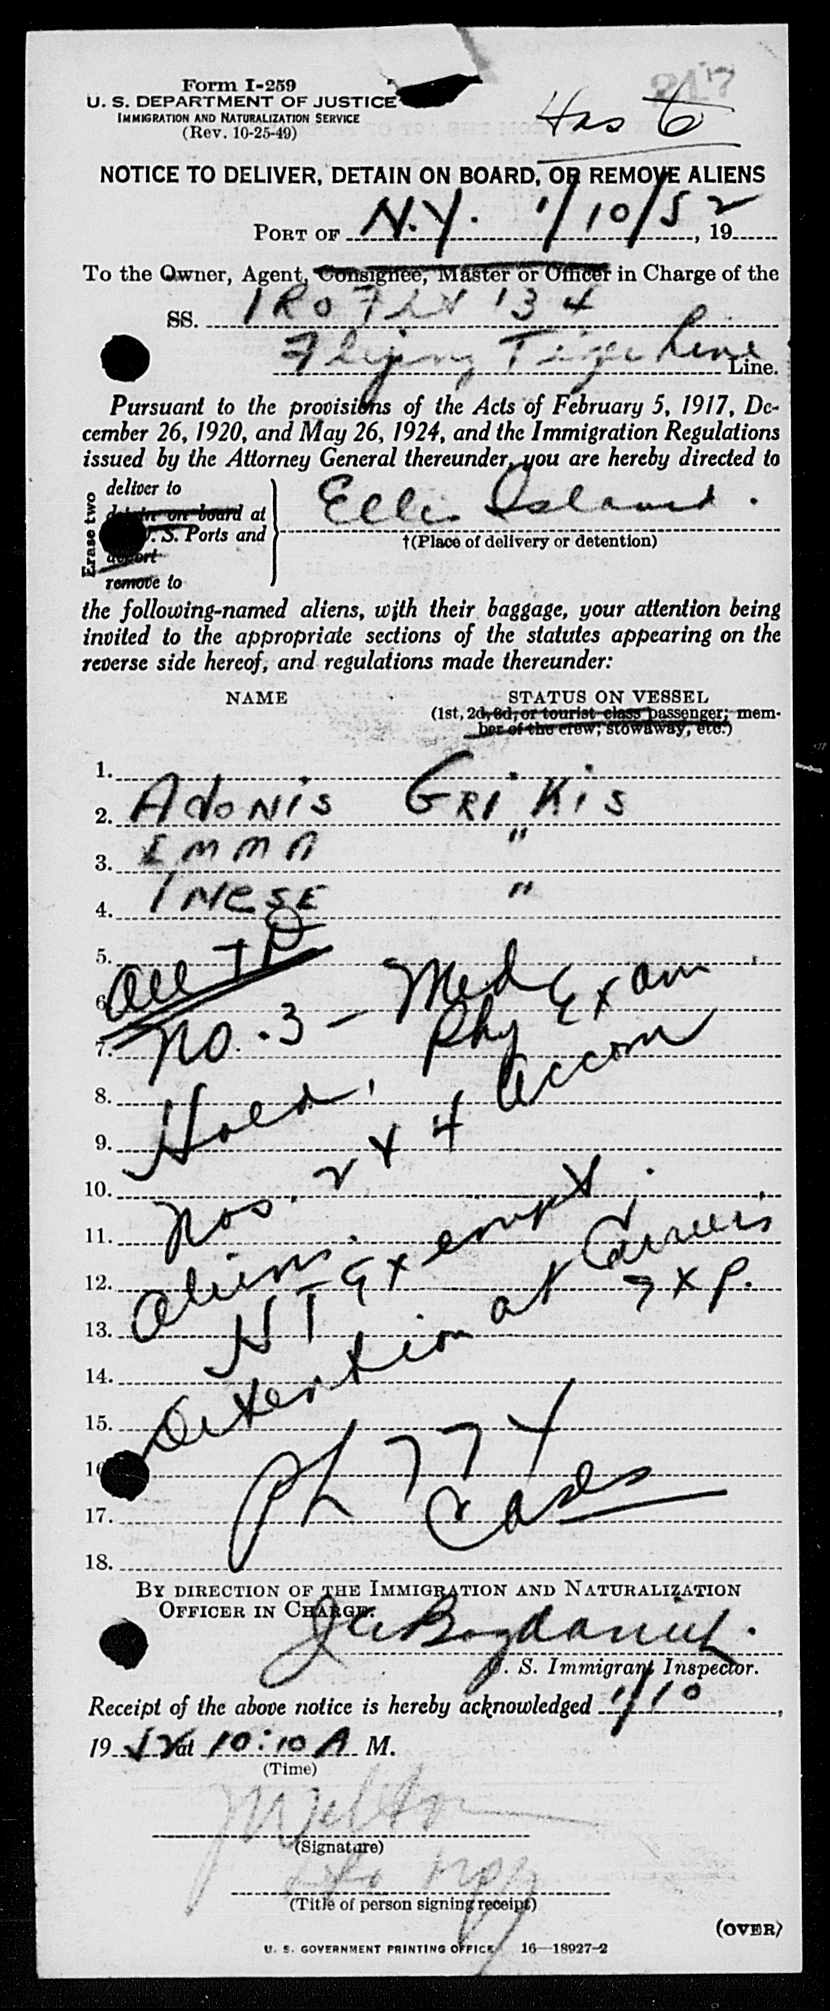 Form I-259
U. S. DEPARTMENT OF JUSTICE
IMMIGRATION AND NATURALIZATION SERVICE
(Rev. 10-25-49)
NOTICE TO DELIVER, DETAIN ON BOARD, OR REMOVE ALIENS
PORT OF N.Y. 1/10/52, 19
To the Owner, Agent, Consignee, Master or Officer in Charge of the
SS. IRO Flt 134
Flying Tiger Line Line.
Pursuant to the provisions of the Acts of February 5, 1917, De-
cember 26, 1920, and May 26, 1924, and the Immigration Regulations
issued by the Attorney General thereunder, you are hereby directed to
Erase two
deliver to
detain on board at
U. S. Ports and
deport
remove to
Ellis Island.
†(Place of delivery or detention)
the following-named aliens, with their baggage, your attention being
invited to the appropriate sections of the statutes appearing on the
reverse side hereof, and regulations made thereunder:
NAME STATUS ON VESSEL
(1st, 2d, 3d, or tourist class passenger; mem-
ber of the crew; stowaway, etc.)
1.
2. Adonis Grikis
3. Emma "
4. Inese "
5. All TD
6. No. 3 - Med Exam
7.
8. Hold, Phy
9. Nos. 2 & 4 Accom
10.
11. Aliens.
12. NT Exempt.
13. Detention at Carriers
14. Exp.
15.
16.
17. Cases
18.
BY DIRECTION OF THE IMMIGRATION AND NATURALIZATION
OFFICER IN CHARGE.
U. S. Immigrant Inspector.
Receipt of the above notice is hereby acknowledged 1/10,
19 52 at 10:10 A M.
(Time)
(Signature)
(Title of person signing receipt)
(OVER)
U. S. GOVERNMENT PRINTING OFFICE 16—18927-2